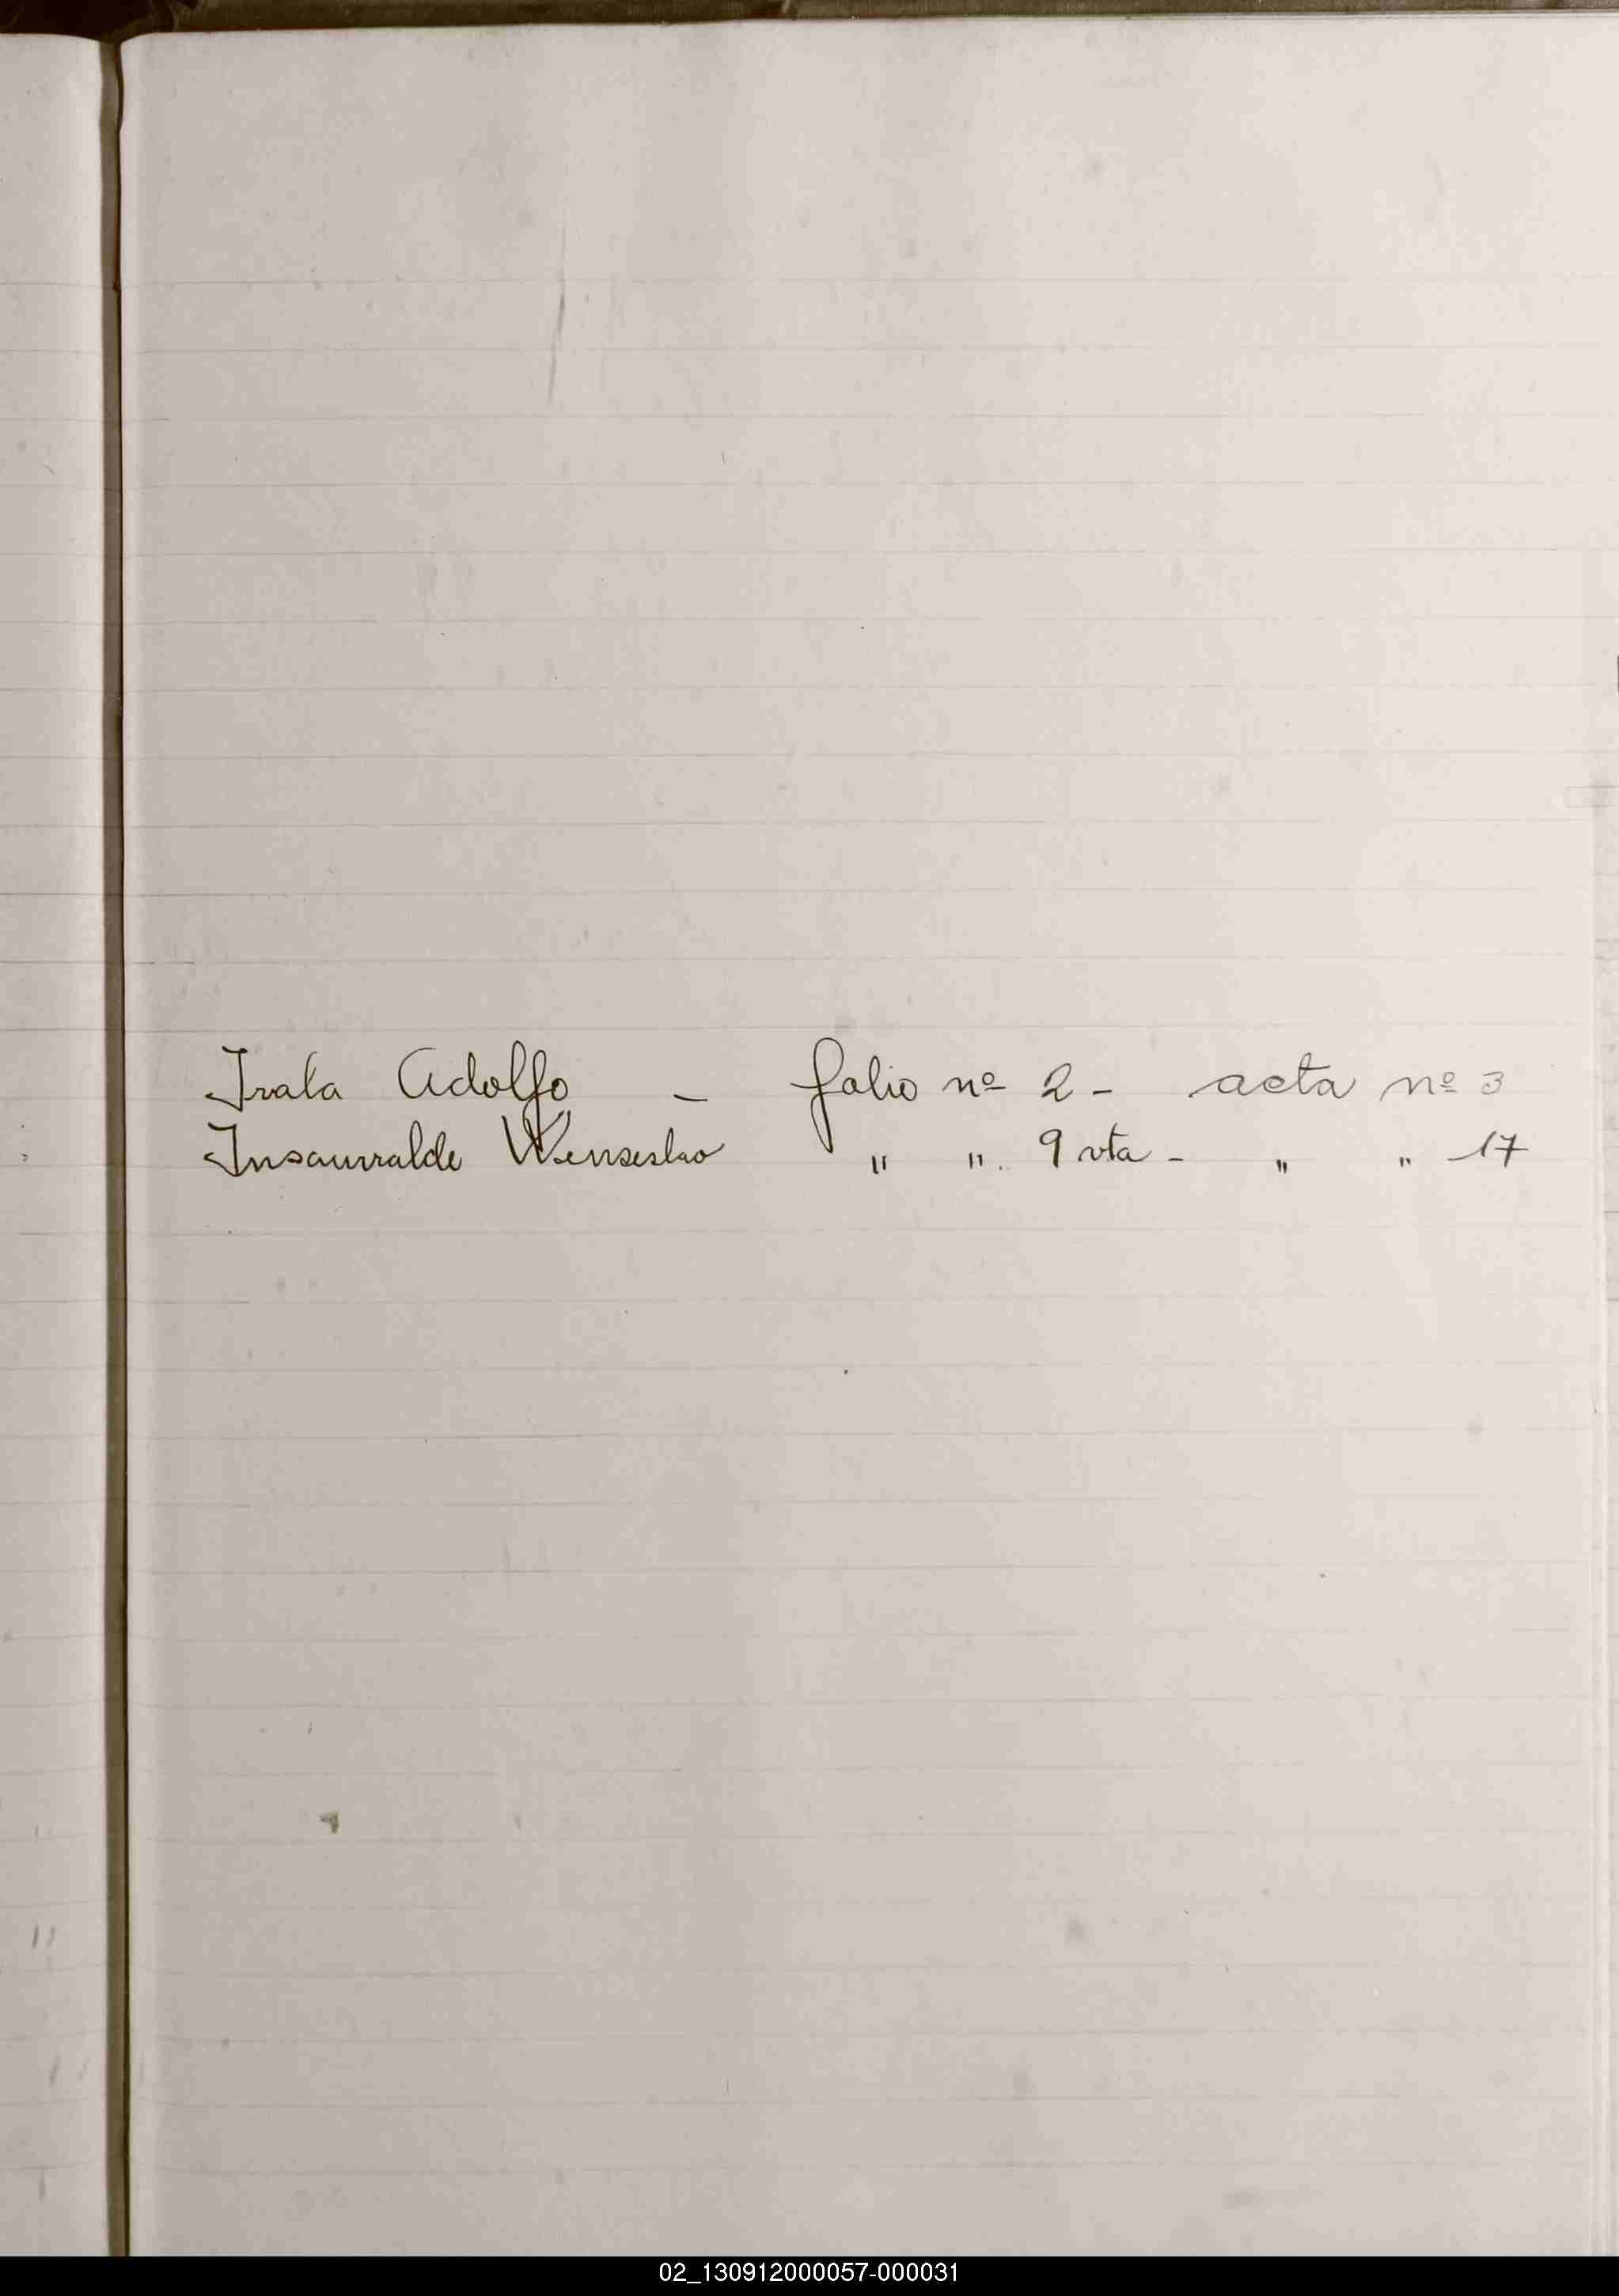 Irala Adolfo - folio nº 2 - acta nº 3
Insaurralde Wenseslao " ". 9 vta - " " 17
02_130912000057-000031